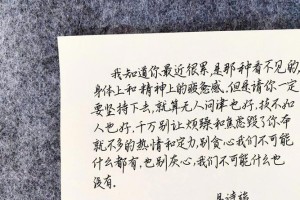 我知道你最近很累,是那种看不见的,
身体上和精神上的疲惫感,但是请你一定
要坚持下去,就算无人问津也好,技不如
人也好,千万别让烦躁和焦虑毁了你本
就不多的热情和定力,别贪心我们不可能
什么都有,也别灰心,我们不可能什么也
没有.